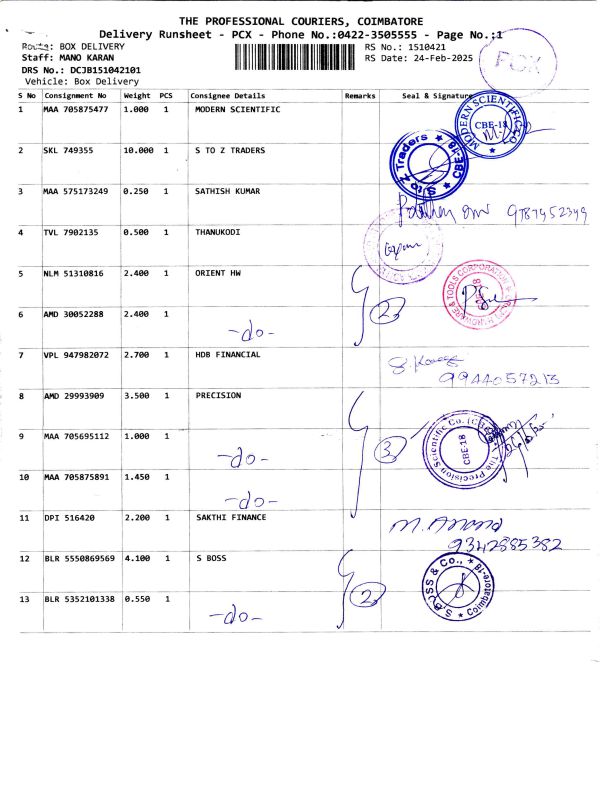 THE PROFESSIONAL COURIERS, COIMBATORE
Delivery Runsheet - PCX - Phone No.:0422-3505555 - Page No.:1
Route: BOX DELIVERY RS No.: 1510421
Staff: MANO KARAN RS Date: 24-Feb-2025
DRS No.: DCJB151042101
Vehicle: Box Delivery
PCX
S No Consignment No Weight PCS Consignee Details Remarks Seal & Signature
1 MAA 705875477 1.000 1 MODERN SCIENTIFIC
MODERN SCIENTIFIC CO CBE-18
2 SKL 749355 10.000 1 S TO Z TRADERS
S to Z Traders CBE-18
3 MAA 575173249 0.250 1 SATHISH KUMAR
4 TVL 7902135 0.500 1 THANUKODI
5 NLM 51310816 2.400 1 ORIENT HW
2
HARDWARE & TOOLS CORPORATION CBE-18
6 AMD 30052288 2.400 1 -do-
7 VPL 947982072 2.700 1 HDB FINANCIAL
9944057213
8 AMD 29993909 3.500 1 PRECISION
9 MAA 705695112 1.000 1 -do- 3
The Precision Scientific Co. (CBE) CBE-18
10 MAA 705875891 1.450 1 -do-
11 DPI 516420 2.200 1 SAKTHI FINANCE M. Anand
9342885382
12 BLR 5550869569 4.100 1 S BOSS
2
S.BOSS & Co., Coimbatore-18
13 BLR 5352101338 0.550 1 -do-